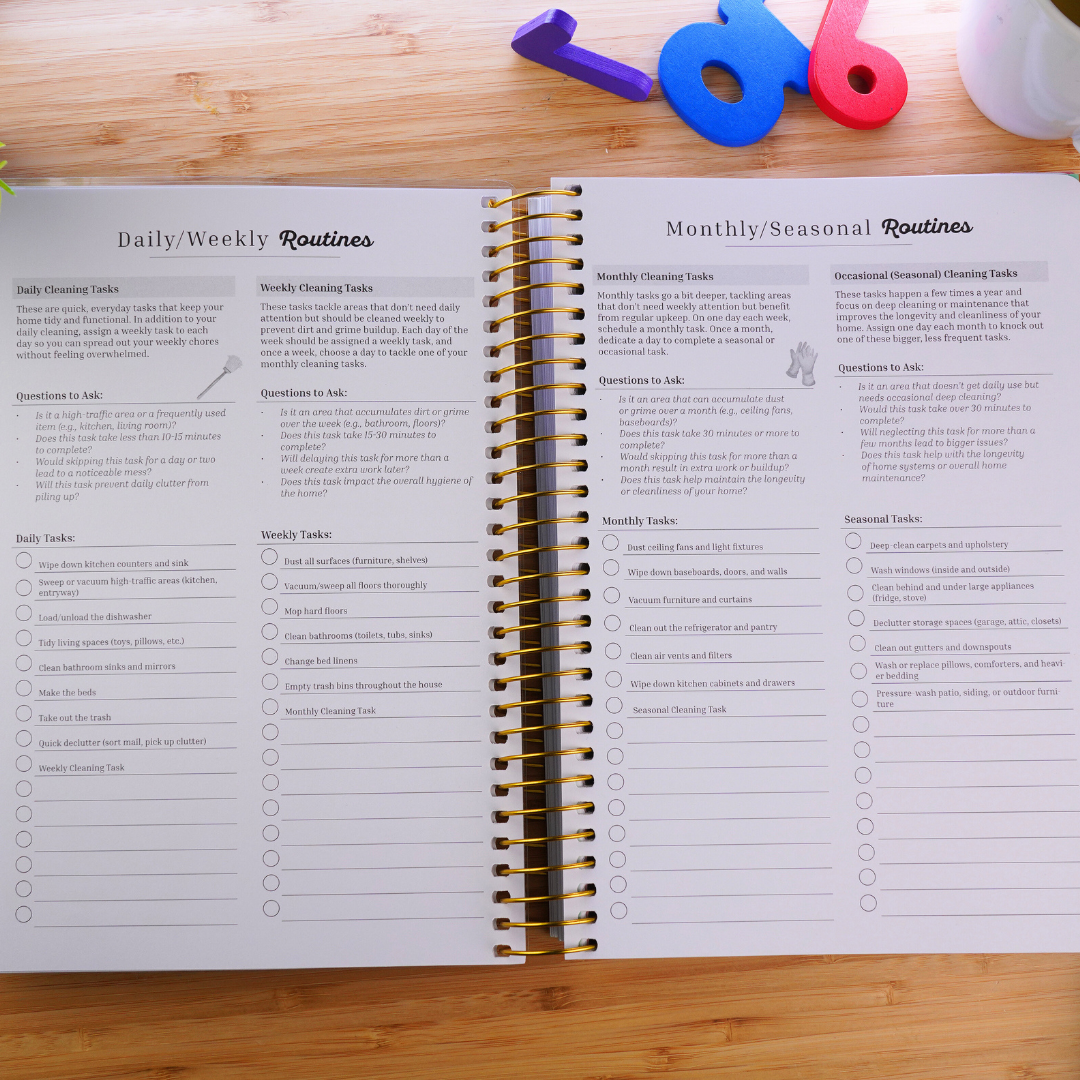 Daily/Weekly Routines
Daily Cleaning Tasks
These are quick, everyday tasks that keep your
home tidy and functional. In addition to your
daily cleaning, assign a weekly task to each
day so you can spread out your weekly chores
without feeling overwhelmed.
Questions to Ask:
· Is it a high-traffic area or a frequently used
item (e.g., kitchen, living room)?
· Does this task take less than 10-15 minutes
to complete?
· Would skipping this task for a day or two
lead to a noticeable mess?
· Will this task prevent daily clutter from
piling up?
Daily Tasks:
Wipe down kitchen counters and sink
Sweep or vacuum high-traffic areas (kitchen,
entryway)
Load/unload the dishwasher
Tidy living spaces (toys, pillows, etc.)
Clean bathroom sinks and mirrors
Make the beds
Take out the trash
Quick declutter (sort mail, pick up clutter)
Weekly Cleaning Task
Weekly Cleaning Tasks
These tasks tackle areas that don't need daily
attention but should be cleaned weekly to
prevent dirt and grime buildup. Each day of the
week should be assigned a weekly task, and
once a week, choose a day to tackle one of your
monthly cleaning tasks.
Questions to Ask:
· Is it an area that accumulates dirt or grime
over the week (e.g., bathroom, floors)?
· Does this task take 15-30 minutes to
complete?
· Will delaying this task for more than a
week create extra work later?
· Does this task impact the overall hygiene of
the home?
Weekly Tasks:
Dust all surfaces (furniture, shelves)
Vacuum/sweep all floors thoroughly
Mop hard floors
Clean bathrooms (toilets, tubs, sinks)
Change bed linens
Empty trash bins throughout the house
Monthly Cleaning Task
Monthly/Seasonal Routines
Monthly Cleaning Tasks
Monthly tasks go a bit deeper, tackling areas
that don't need weekly attention but benefit
from regular upkeep. On one day each week,
schedule a monthly task. Once a month,
dedicate a day to complete a seasonal or
occasional task.
Questions to Ask:
· Is it an area that can accumulate dust
or grime over a month (e.g., ceiling fans,
baseboards)?
· Does this task take 30 minutes or more to
complete?
· Would skipping this task for more than a
month result in extra work or buildup?
· Does this task help maintain the longevity
or cleanliness of your home?
Monthly Tasks:
Dust ceiling fans and light fixtures
Wipe down baseboards, doors, and walls
Vacuum furniture and curtains
Clean out the refrigerator and pantry
Clean air vents and filters
Wipe down kitchen cabinets and drawers
Seasonal Cleaning Task
Occasional (Seasonal) Cleaning Tasks
These tasks happen a few times a year and
focus on deep cleaning or maintenance that
improves the longevity and cleanliness of your
home. Assign one day each month to knock out
one of these bigger, less frequent tasks.
Questions to Ask:
· Is it an area that doesn't get daily use but
needs occasional deep cleaning?
· Would this task take over 30 minutes to
complete?
· Will neglecting this task for more than a
few months lead to bigger issues?
· Does this task help with the longevity
of home systems or overall home
maintenance?
Seasonal Tasks:
Deep-clean carpets and upholstery
Wash windows (inside and outside)
Clean behind and under large appliances
(fridge, stove)
Declutter storage spaces (garage, attic, closets)
Clean out gutters and downspouts
Wash or replace pillows, comforters, and heavi-
er bedding
Pressure-wash patio, siding, or outdoor furni-
ture